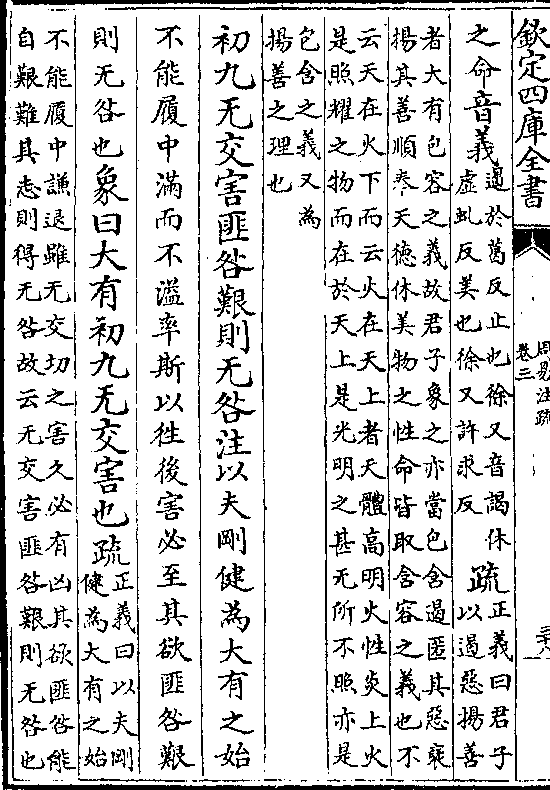 欽定四庫全書
周易注疏
卷三
三十八
之命音義遏於葛反止也徐又音謁休
虛虬反美也徐又許求反
疏正義曰君子
以遏惡揚善
者大有包容之義故君子象之亦當包含遏匿其惡襃
揚其善順奉天德休美物之性命皆取含容之義也不
云天在火下而云火在天上者天體高明火性炎上火
是照耀之物而在於天上是光明之甚无所不照亦是
包含之義又為
揚善之理也
初九无交害匪咎艱則无咎注以夫剛健為大有之始
不能履中滿而不溢率斯以往後害必至其欲匪咎艱
則无咎也象曰大有初九无交害也疏正義曰以夫剛
健為大有之始
不能履中謙退雖无交切之害久必有凶其欲匪咎能
自艱難其志則得无咎故云无交害匪咎艱則无咎也